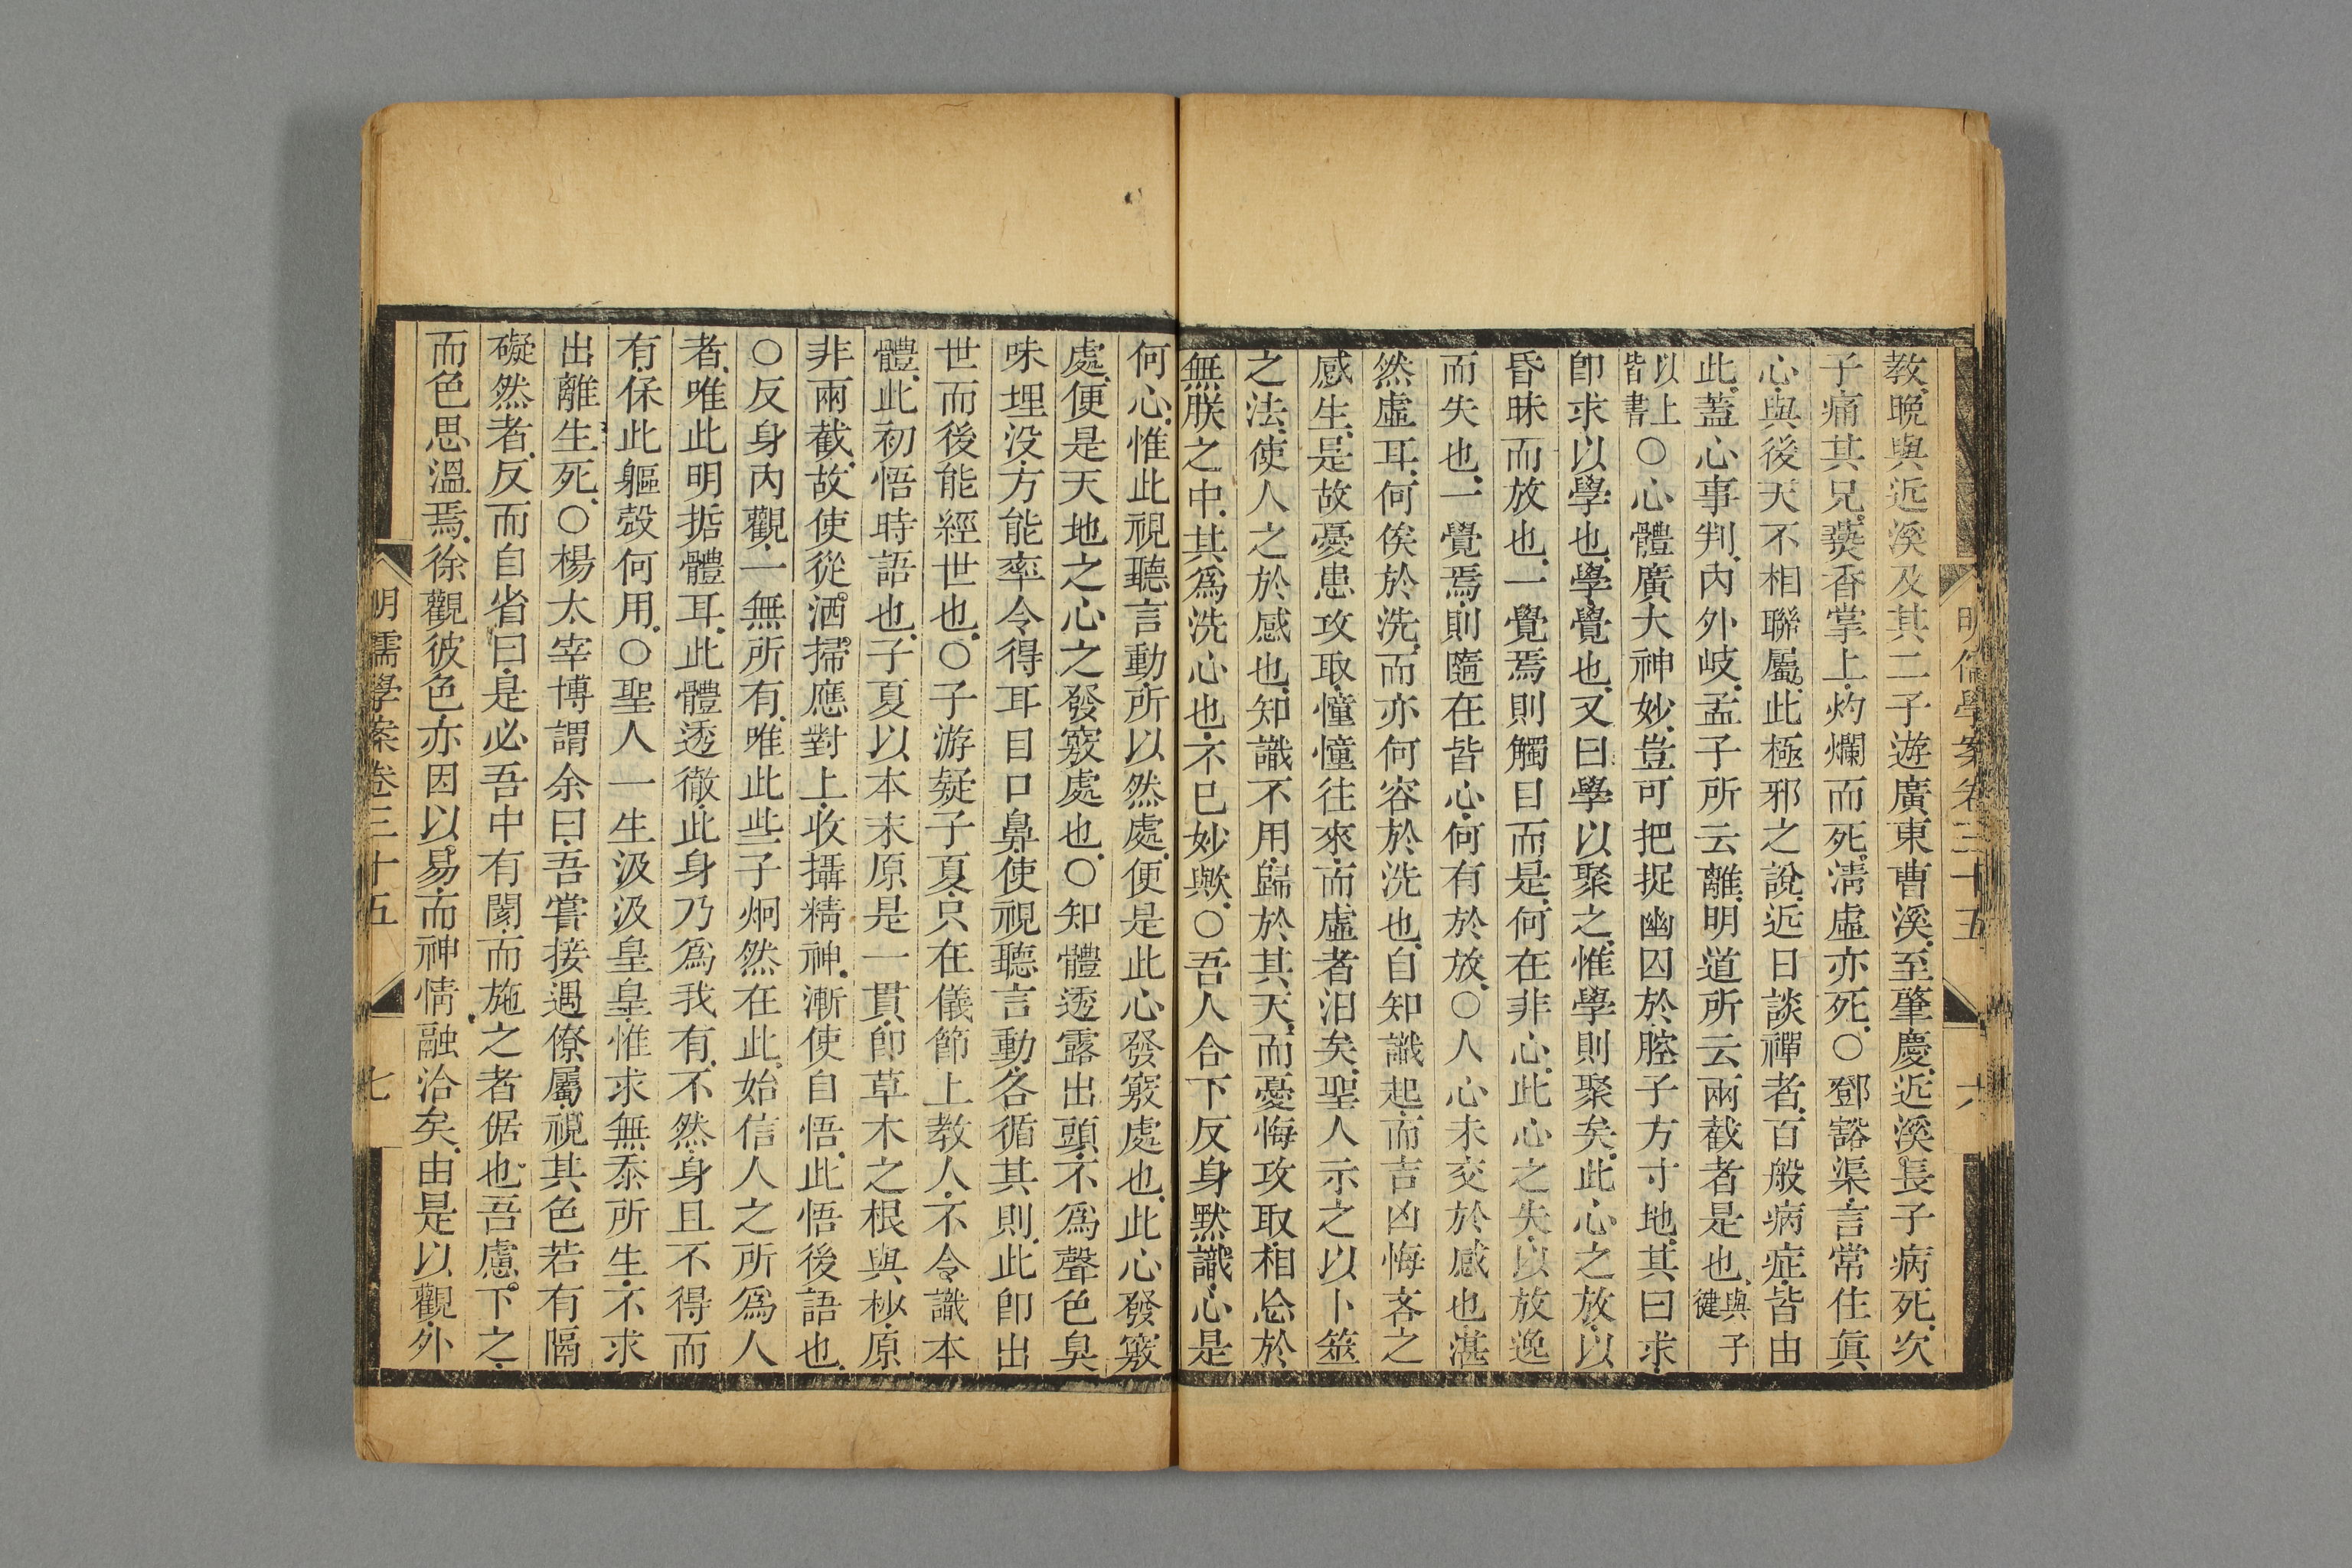 明儒學案卷三十五
六
教晚與近溪及其二子遊廣東曹溪至肇慶近溪長子病死次
子痛其兄爇香掌上灼爛而死淸虛亦死○鄧豁渠言常住眞
心與後天不相聯屬此極邪之說近日談禪者百般病症皆由
此蓋心事判內外岐孟子所云離明道所云兩截者是也與子健
以上皆書○心體廣大神妙豈可把捉幽囚於腔子方寸地其曰求
卽求以學也學覺也又曰學以聚之惟學則聚矣此心之放以
昏昧而放也一覺焉則觸目而是何在非心此心之失以放逸
而失也一覺焉則隨在皆心何有於放○人心未交於感也湛
然虛耳何俟於洗而亦何容於洗也自知識起而吉凶悔吝之
感生是故憂患攻取憧憧往來而虛者汨矣聖人示之以卜筮
之法使人之於感也知識不用歸於其天而憂悔攻取相忘於
無朕之中其爲洗心也不已妙歟○吾人合下反身默識心是
何心惟此視聽言動所以然處便是此心發竅處也此心發竅
處便是天地之心之發竅處也○知體透露出頭不爲聲色臭
味埋没方能率令得耳目口鼻使視聽言動各循其則此卽出
世而後能經世也○子游疑子夏只在儀節上教人不令識本
體此初悟時語也子夏以本末原是一貫卽草木之根與杪原
非兩截故使從洒掃應對上收攝精神漸使自悟此悟後語也
○反身內觀一無所有唯此些子炯然在此始信人之所爲人
者唯此明㨿體耳此體透徹此身乃爲我有不然身且不得而
有保此軀殼何用○聖人一生汲汲皇皇惟求無忝所生不求
出離生死○楊太宰博謂余曰吾嘗接遇僚屬視其色若有隔
礙然者反而自省曰是必吾中有閡而施之者倨也吾慮下之
而色思溫焉徐觀彼色亦因以易而神情融洽矣由是以觀外
明儒學案卷三十五
七